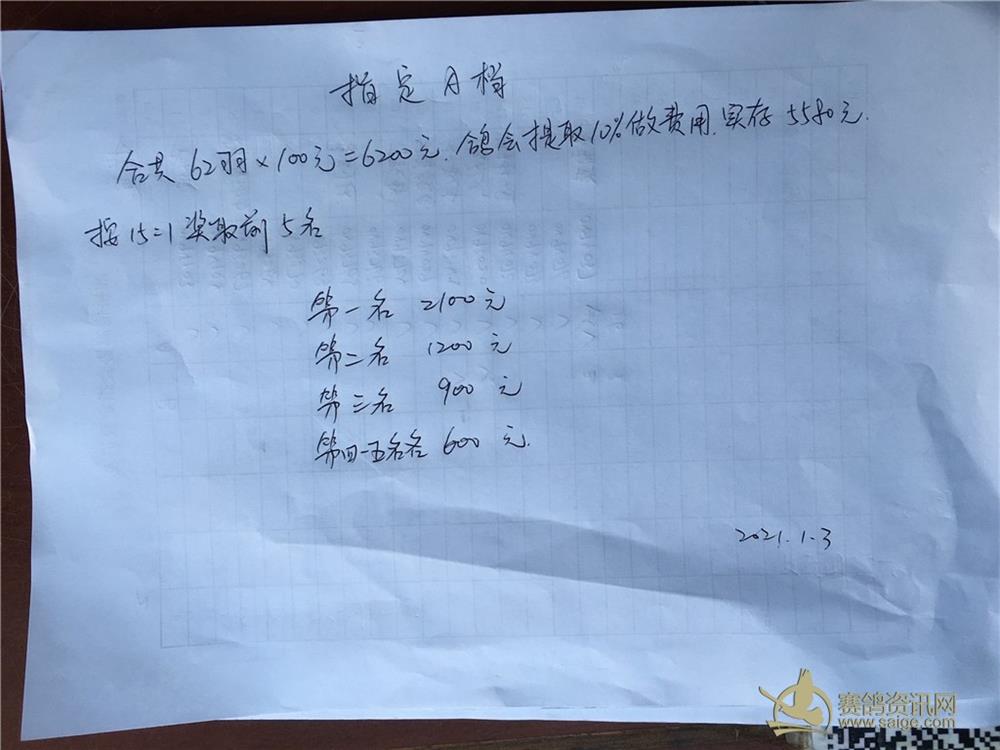 指定A档
合共62羽×100元=6200元.鸽会提取10%做费用.实存5580元.
按15=1奖取前5名
第一名 2100元
第二名 1200元
第三名 900元
第四-五名各 600元.
2021.1.3
赛鸽资讯网
www.saige.com